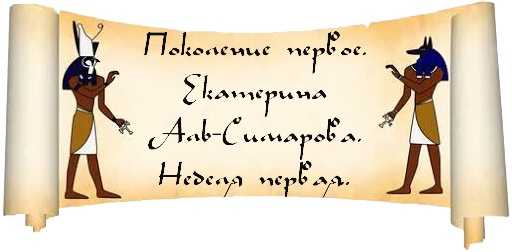 Поколение первое.
Екатерина
Аль-Симарова.
Неделя первая.